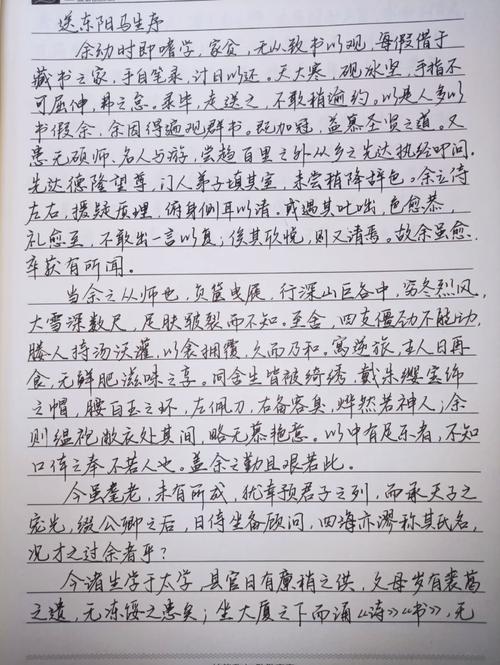 送东阳马生序
余幼时即嗜学，家贫，无从致书以观，每假借于
藏书之家，手自笔录，计日以还。天大寒，砚冰坚，手指不
可屈伸，弗之怠。录毕，走送之，不敢稍逾约。以是人多以
书假余，余因得遍观群书。既加冠，益慕圣贤之道。又
患无硕师、名人与游，尝趋百里之外从乡之先达执经叩问。
先达德隆望尊，门人弟子填其室，未尝稍降辞色。余立侍
左右，援疑质理，俯身倾耳以请。或遇其叱咄，色愈恭，
礼愈至，不敢出一言以复；俟其欣悦，则又请焉。故余虽愈，
卒获有所闻。
当余之从师也，负箧曳屣，行深山巨谷中，穷冬烈风，
大雪深数尺，足肤皲裂而不知。至舍，四支僵劲不能动，
媵人持汤沃灌，以衾拥覆，久而乃和。寓逆旅，主人日再
食，无鲜肥滋味之享。同舍生皆被绮绣，戴朱缨宝饰
之帽，腰白玉之环，左佩刀，右备容臭，烨然若神人；余
则缊袍敝衣处其间，略无慕艳意。以中有足乐者，不知
口体之奉不若人也。盖余之勤且艰若此。
今虽耄老，未有所成，犹幸预君子之列，而承天子之
宠光，缀公卿之后，日侍坐备顾问，四海亦谬称其氏名，
况才之过余者乎？
今诸生学于太学，县官日有廪稍之供，父母岁有裘葛
之遗，无冻馁之患矣；坐大厦之下而诵《诗》《书》，无